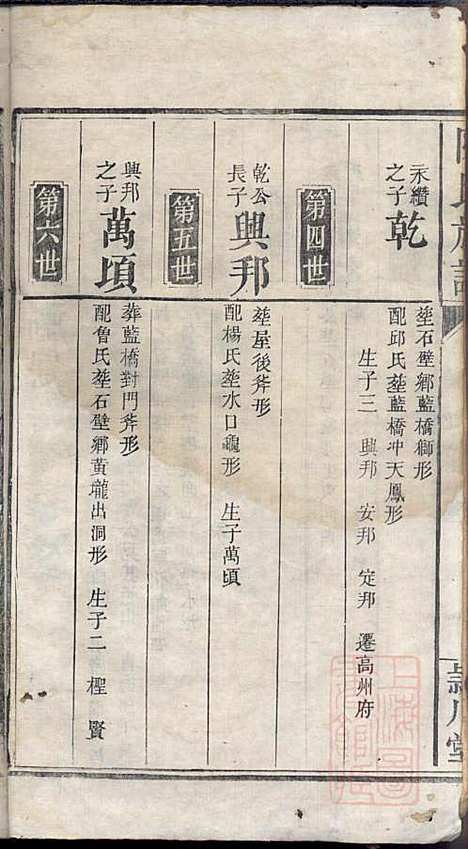 氏族譜
潁川堂
永纘之子 乾
塟石壁鄉藍橋獅形
配邱氏塟藍橋冲天鳳形
生子三 興邦 安邦 定邦 遷高州府
第四世
乾公長子 興邦
塟屋後斧形
配楊氏塟水口龜形 生子萬頃
第五世
興邦之子 萬頃
葬藍橋對門斧形
配魯氏塟石壁鄉黄龍出洞形 生子二 檉 賢
第六世